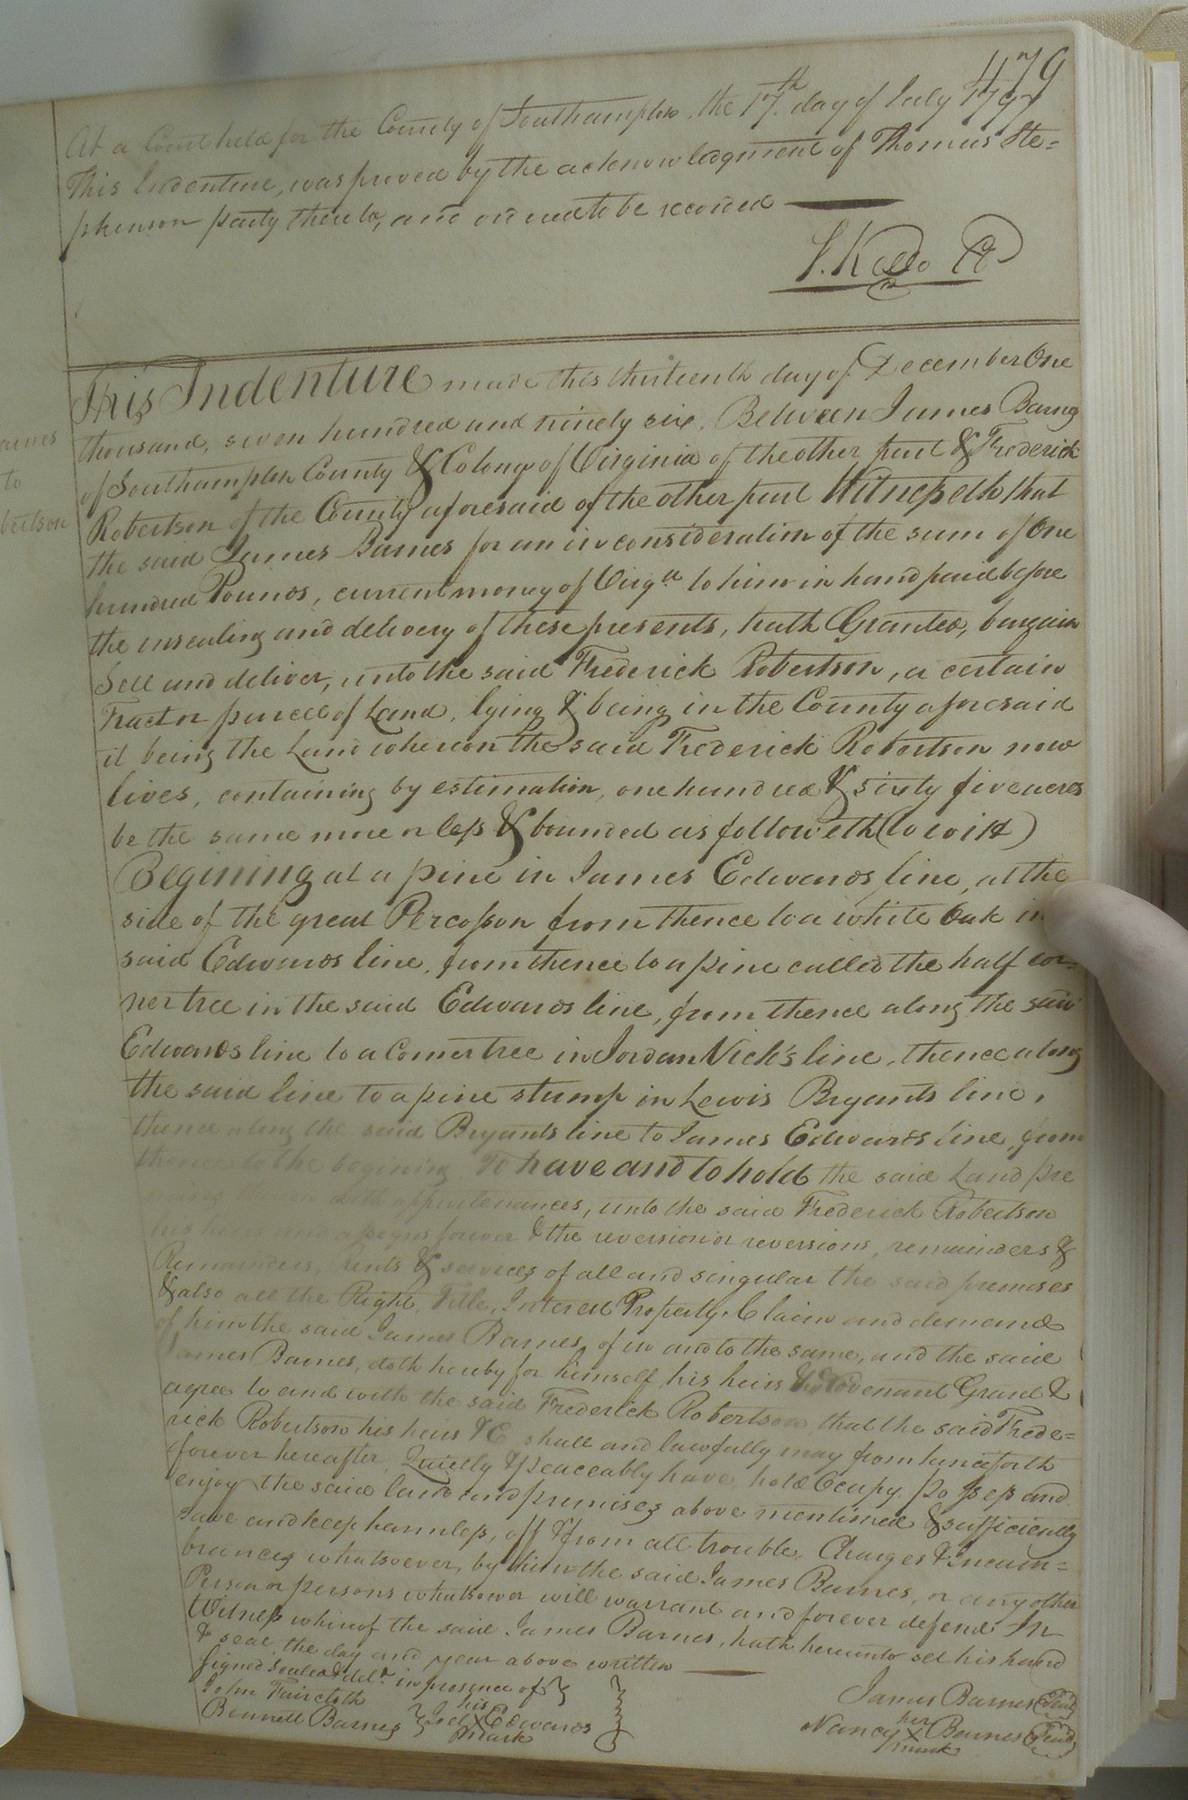 479
At a Court held for the County of Southampton, the 17th day of July 1797
This Indenture, was proved by the acknowledgment of Thomas Ste=
phenson party thereto, and ordered to be recorded
S. Kello Ct
arnes
to
bertson
This Indenture made this thirteenth day of December One
thousand, seven hundred and ninety six, Between James Barns
of Southampton County & Colony of Virginia of the other part & Frederick
Robertson of the County aforesaid of the other part Witnesseth that
the said James Barnes for an in consideration of the sum of One
hundred Pounds, current money of Virga to him in hand paid before
the insealing and delivery of these presents, hath Granted, bargain
Sell and deliver, unto the said Frederick Robertson, a certain
Tract or parcel of Land, lying & being in the County aforesaid
it being the Land whereon the said Frederick Robertson now
lives, containing by estimation, one hundred & sixty five acres
be the same more or less & bounded as followeth (to wit)
Begining at a pine in James Edwards line, at the
side of the great Percosson from thence to a white Oak in
said Edwards line, from thence to a pine called the half cor=
ner tree in the said Edwards line, from thence along the said
Edwards line to a Corner tree in Jordan Vick's line, thence along
the said line to a pine stump in Lewis Bryants line,
thence along the said Bryants line to James Edwards line, from
thence to the begining. To have and to hold the said Land pre
with appurtenances, unto the said Frederick Robertson
his heirs and assigns forever & the reversion or reversions, remainders &
Remainders, Rents & services of all and singular the said premises
& also all the Right, Title, Interest Property, Claim and demand
of him the said James Barnes, of in and to the same, and the said
James Barnes, doth hereby for himself, his heirs Covenant Grant &
agree to and with the said Frederick Robertson that the said Frede=
rick Robertson his heirs &C shall and lawfully may from henceforth
forever hereafter, Quietly & peaceably have, hold Ocupy, possess and
enjoy the said land and premises above mentioned & sufficiently
save and keep harmless, off & from all trouble, Charges & Incum=
brances whatsoever, by him the said James Barnes, or any other
Person or persons whatsoever will warrant and forever defend In
Witness whereof the said James Barnes, hath hereunto set his hand
& seal the day and year above written
Signed Sealed & delr. in presence of
John Faircloth
Bennett Barnes
his
Joel X Edwards
mark
James Barnes Seal
her
Nancy X Barnes Seal
mark